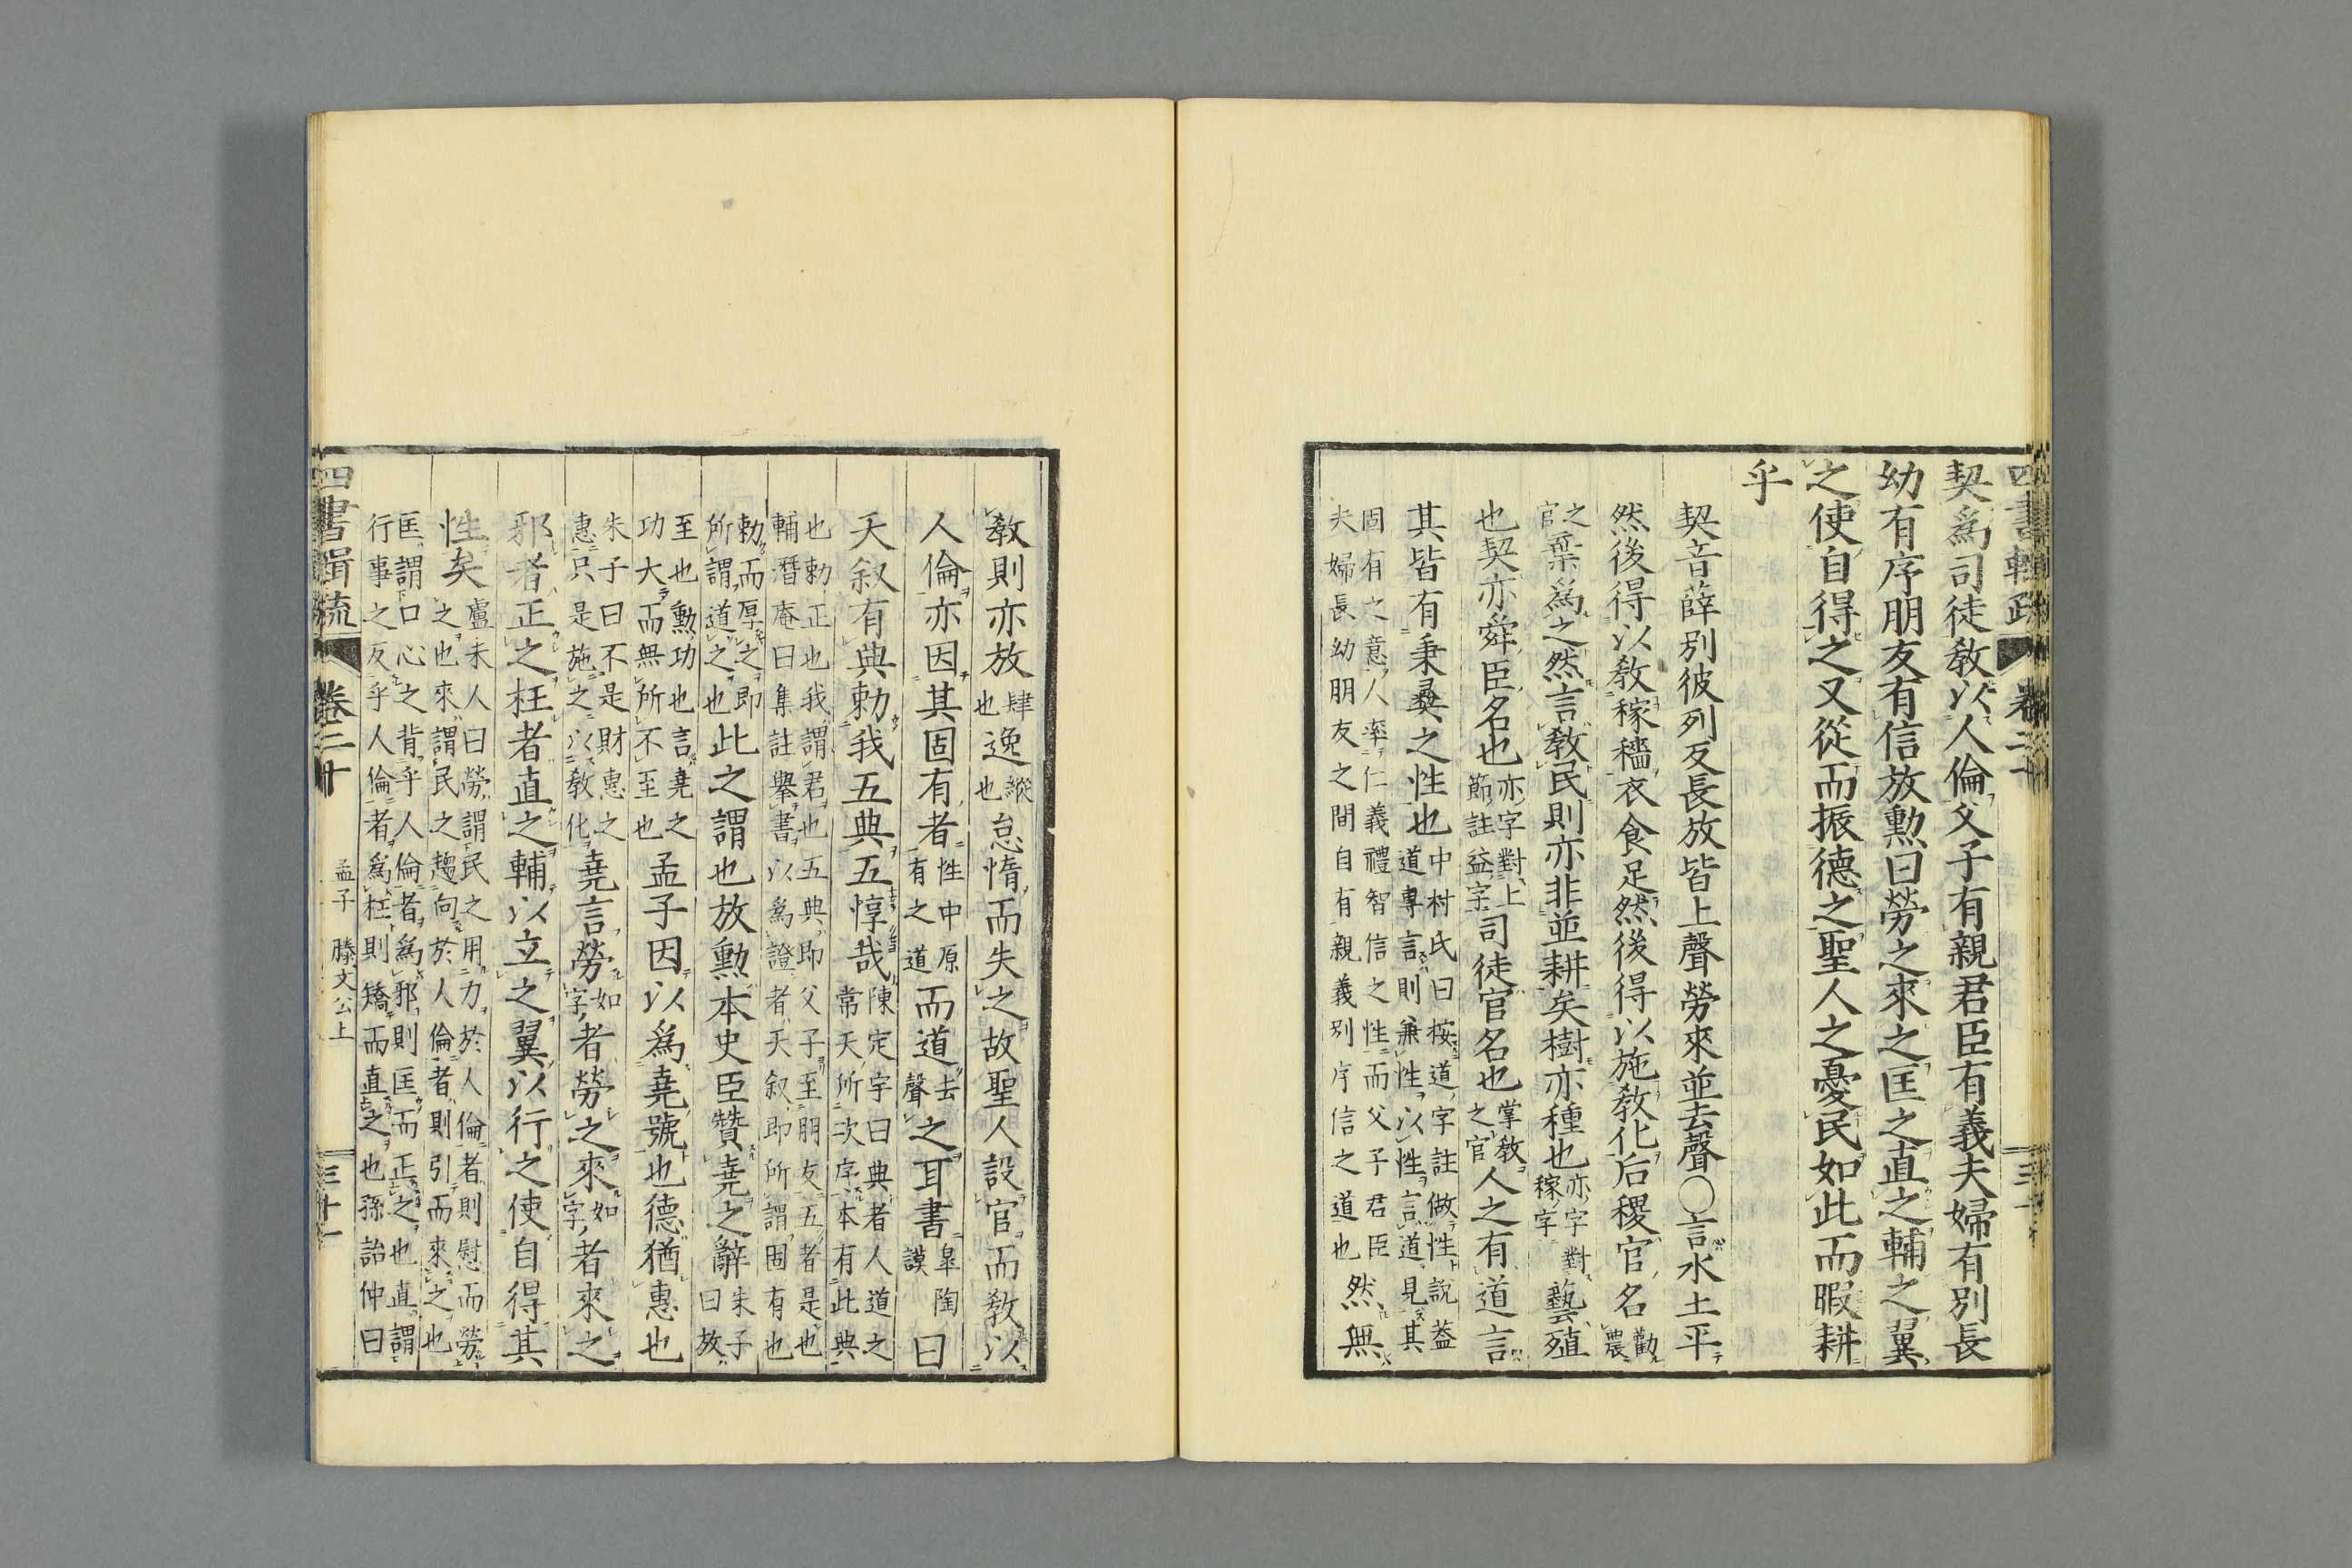 四書輯疏 卷二十 三十一
契爲司徒敎以人倫父子有親君臣有義夫婦有別長
幼有序朋友有信放勲曰勞之來之匡之直之輔之翼
之使自得之又從而振德之聖人之憂民如此而暇耕
乎
契音薛別彼列反長放皆上聲勞來並去聲○言水土平
然後得以敎稼穡衣食足然後得以施敎化后稷官名勸農
之官棄爲之然言敎民則亦非並耕矣樹亦種也亦字對稼字藝殖
也契亦舜臣名也亦字對上節註益字司徒官名也掌敎之官人之有道言
其皆有秉彝之性也中村氏曰按道字註做性說葢道專言則兼性以性言道見其
固有之意人率仁義禮智信之性而父子君臣夫婦長幼朋友之間自有親義別序信之道也然無
敎則亦放肆也逸縱也怠惰而失之故聖人設官而敎以
人倫亦因其固有者性中有之原道而道去聲之耳書皐陶謨曰
天叙有典勅我五典五惇哉陳定宇曰典者人道之常天所次序本有此典
也勅正也我謂君也五典即父子至朋友五者是也輔潛庵曰集註擧書以爲證者天叙即所謂固有也
勅而厚之即所謂道之也此之謂也放勲本史臣贊堯之辭朱子曰放
至也勲功也言堯之功大而無所不至也孟子因以爲堯號也德猶惠也
朱子曰不是財惠之惠只是施之以敎化堯言勞如字者勞之來如字者來之
邪者正之枉者直之輔以立之翼以行之使自得其
性矣盧未人曰勞謂民之用力於人倫者則慰而勞之也來謂民之趨向於人倫者則引而來之也
匡謂口心之背乎人倫者爲邪則匡而正之也直謂行事之反乎人倫者爲枉則矯而直之也孫詒仲曰
四書輯疏 卷二十 孟子 滕文公上 三十一